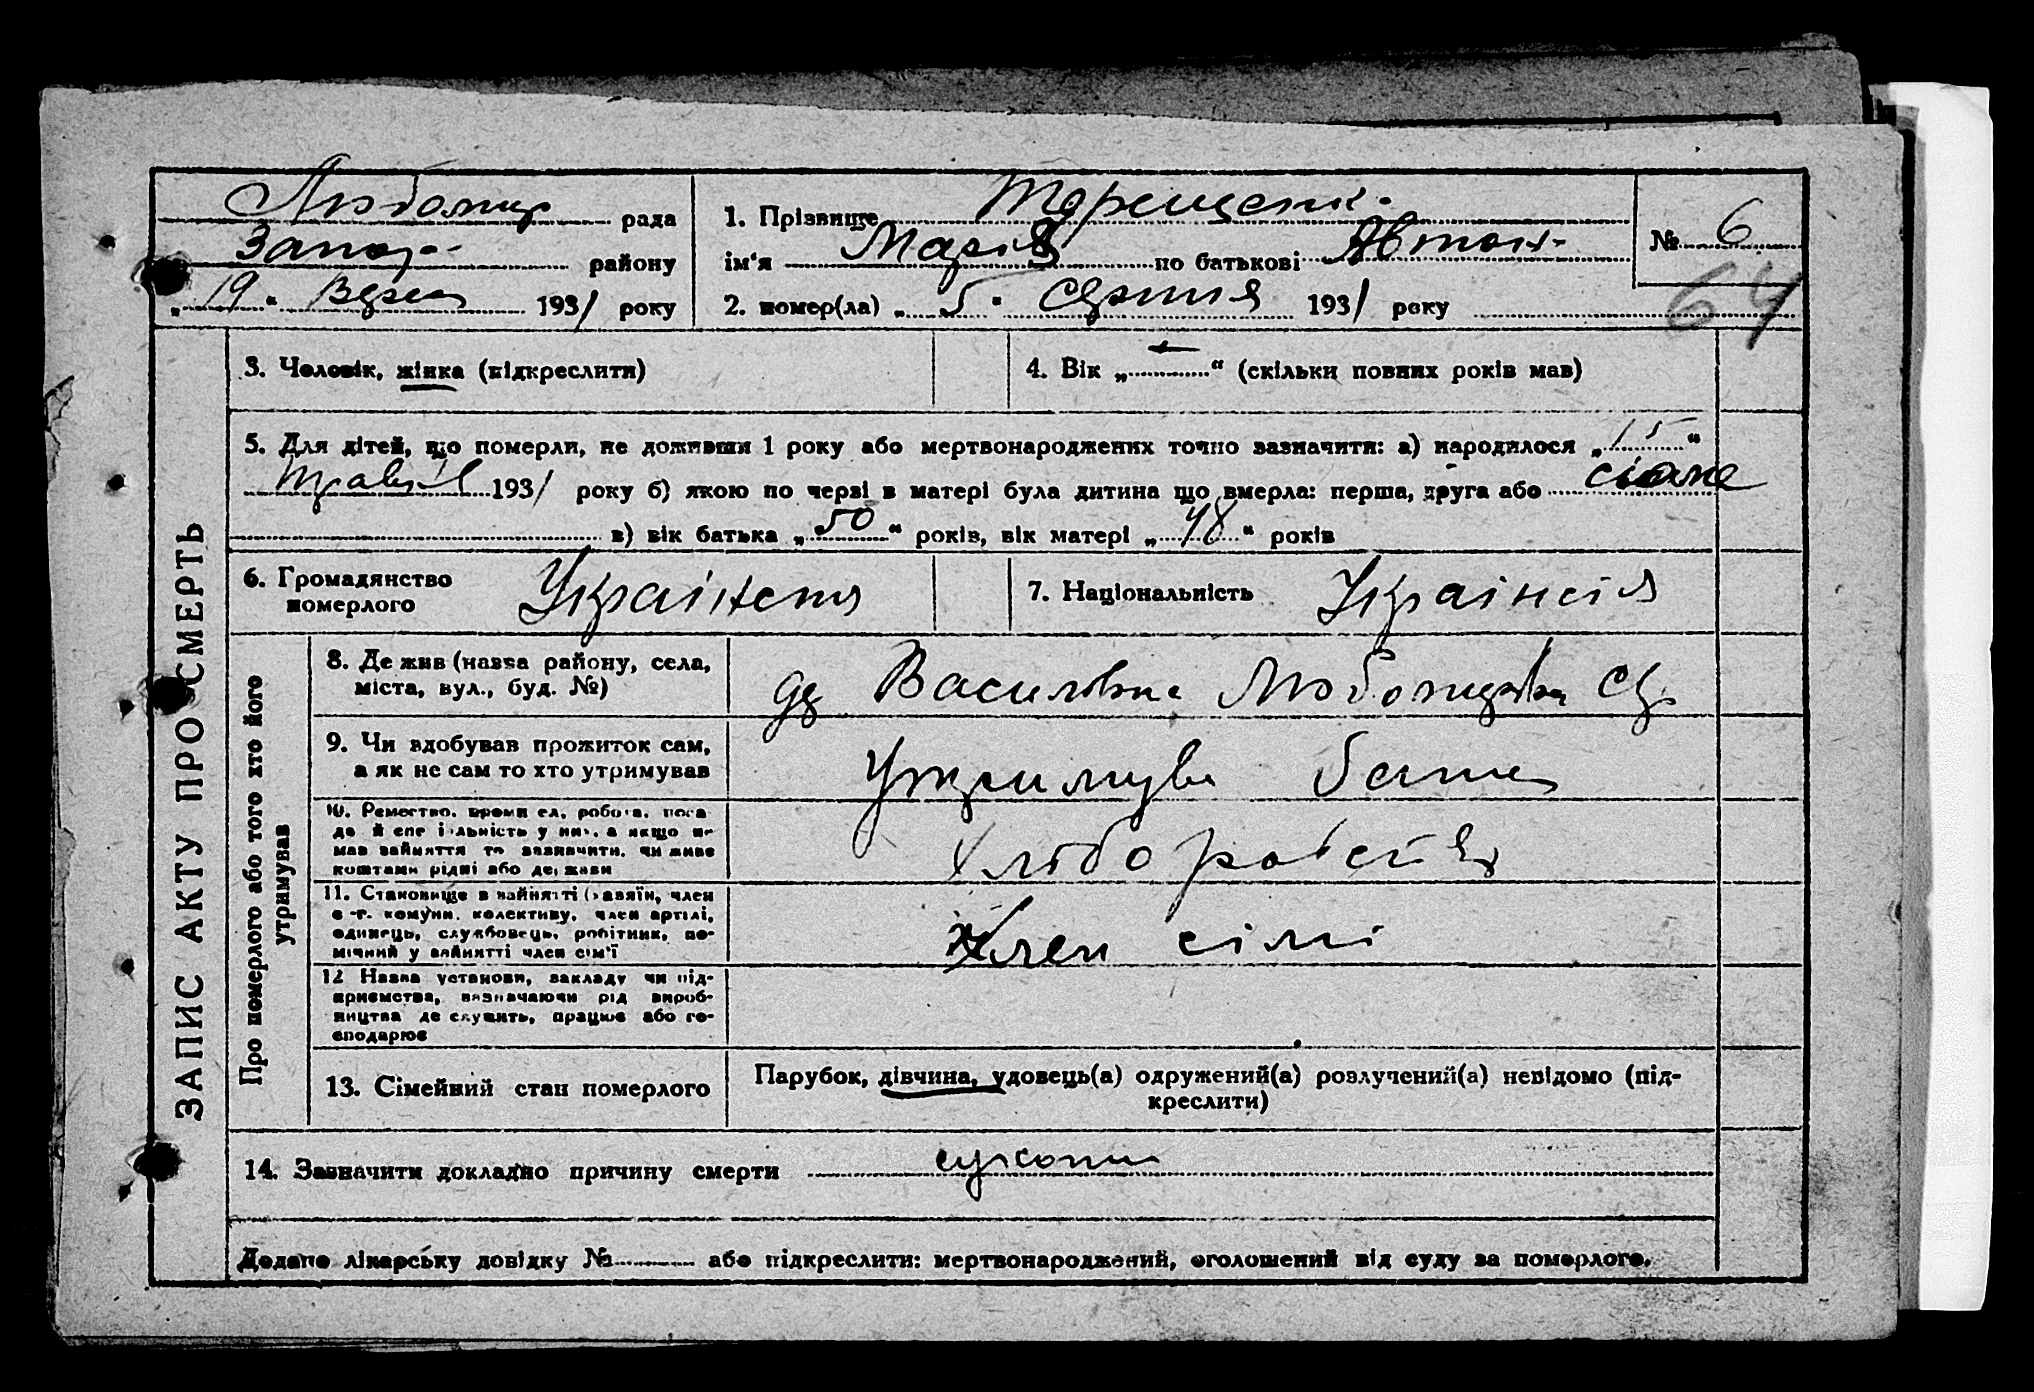 Любомир рада
Запор. району
„19“ Верес 1931 року
1. Прізвище Терещенк.
ім‘я Марія по батькові Антон.
2. помер(ла) „5“ Серпня 1931 року
№ 6
64
3. Чоловік, жінка (підкреслити)
4. Вік „—“ (скільки повних років мав)
5. Для дітей, що померли, не доживши 1 року або мертвонароджених точно зазначити: а) народилося „15“
травня 1931 року б) якою по черзі в матері була дитина що вмерла: перша, друга або сіоме
в) вік батька „50“ років, вік матері „48“ років
6. Громадянство
померлого
Українська
7. Національність Українська
8. Де жив (назва району, села,
міста, вул., буд. №)
Василівка Любомирівка
9. Чи вдобував прожиток сам,
а як не сам то хто утримував
Утримував батько
10. Ремество, промисел, робота, поса-
да й спеціяльність у них, а якщо не
мав зайняття то зазначити, чи живе
коштами рідні або держави
хліборобство
11. Становище в зайнятті (хазяїн, член
с.-г. комуни, колективу, член артілі,
одинець, службовець, робітник, по-
мічний у зайнятті член сім‘ї
Член сімї
12 Назва установи, закладу чи під-
приємства, визначаючи рід вироб-
ництва де служить, працює або го-
сподарює
13. Сімейний стан померлого
Парубок, дівчина, удовець(а) одружений(а) розлучений(а) невідомо (під-
креслити)
14. Зазначити докладно причину смерти
Додано лікарську довідку № або підкреслити: мертвонароджений, оголошений від суду за померлого.
ЗАПИС АКТУ ПРО СМЕРТЬ
Про померлого або того хто його
утримував